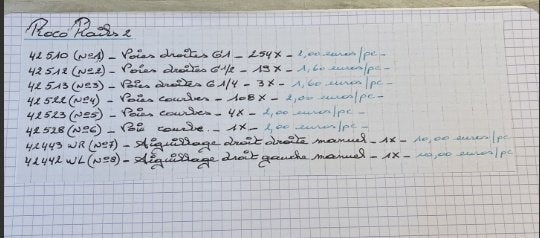 Roco Rails 2
42510 (N°1) - Voies droites G1 - 254x - 2,00 euros/pc -
42512 (N°2) - Voies droites G1/2 - 19x - 1,60 euros/pc -
42513 (N°3) - Voies droites G1/4 - 3x - 1,60 euros/pc -
42522 (N°4) - Voies courbes - 108x - 2,00 euros/pc -
42523 (N°5) - Voies courbes - 4x - 2,00 euros/pc -
42528 (N°6) - Voie courbe - 1x - 2,00 euros/pc -
42443 WR (N°7) - Aiguillage droit droite manuel - 1x - 10,00 euros/pc
42442 WL (N°8) - Aiguillage droit gauche manuel - 1x - 10,00 euros/pc